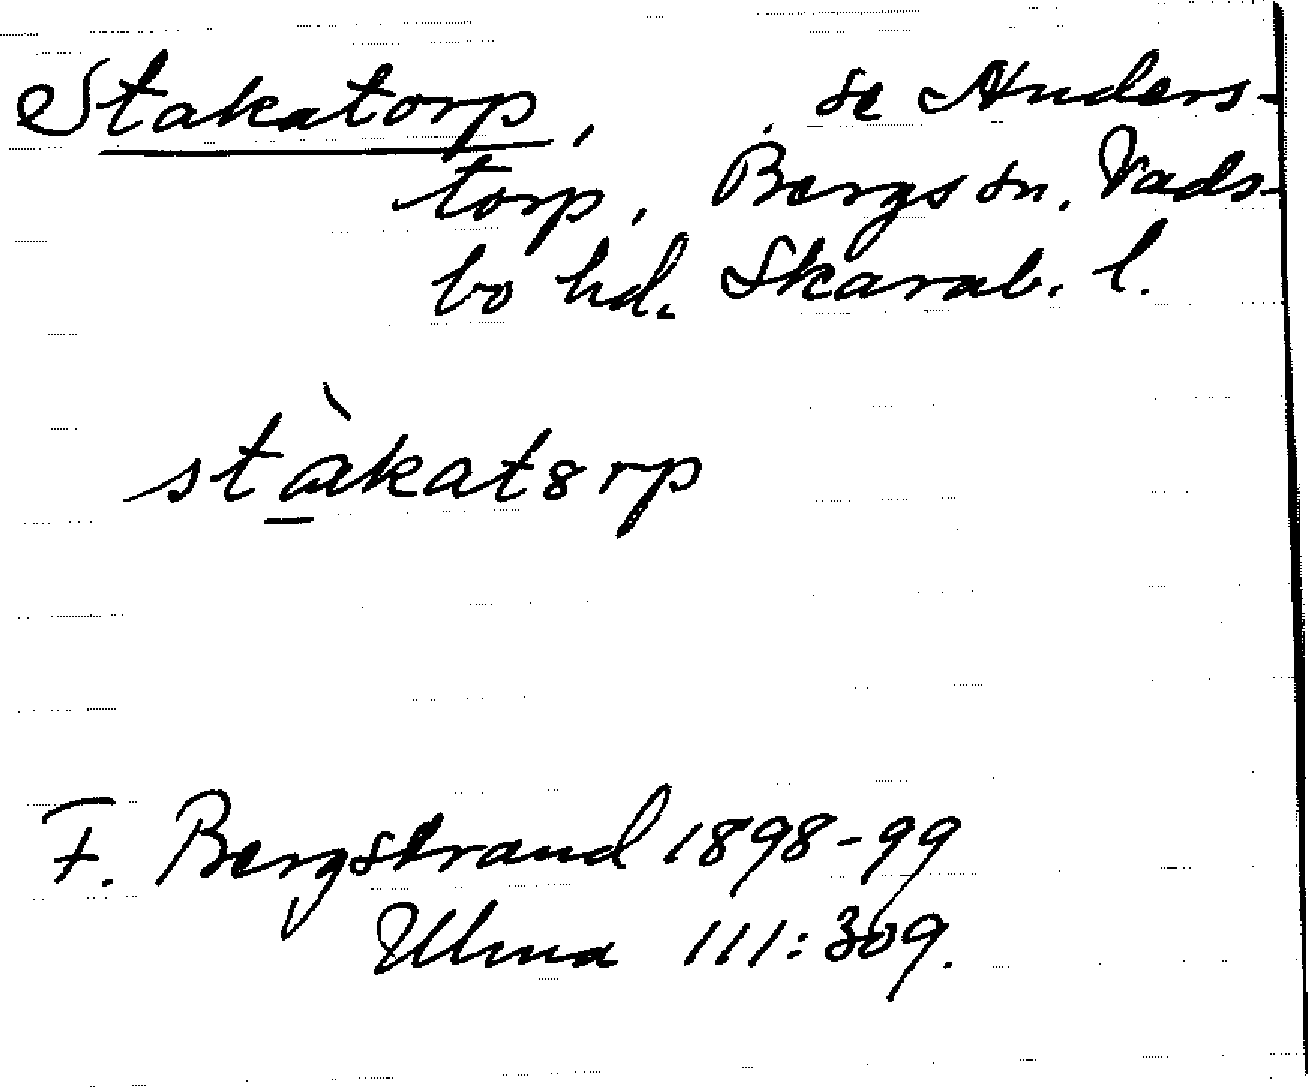 Stakatorp, se Anders-
torp, Bergs sn, Vads-
bo hd. Skarab. l.
stàkatȣrp
F. Bergstrand 1898-99
Ulma 111:309.